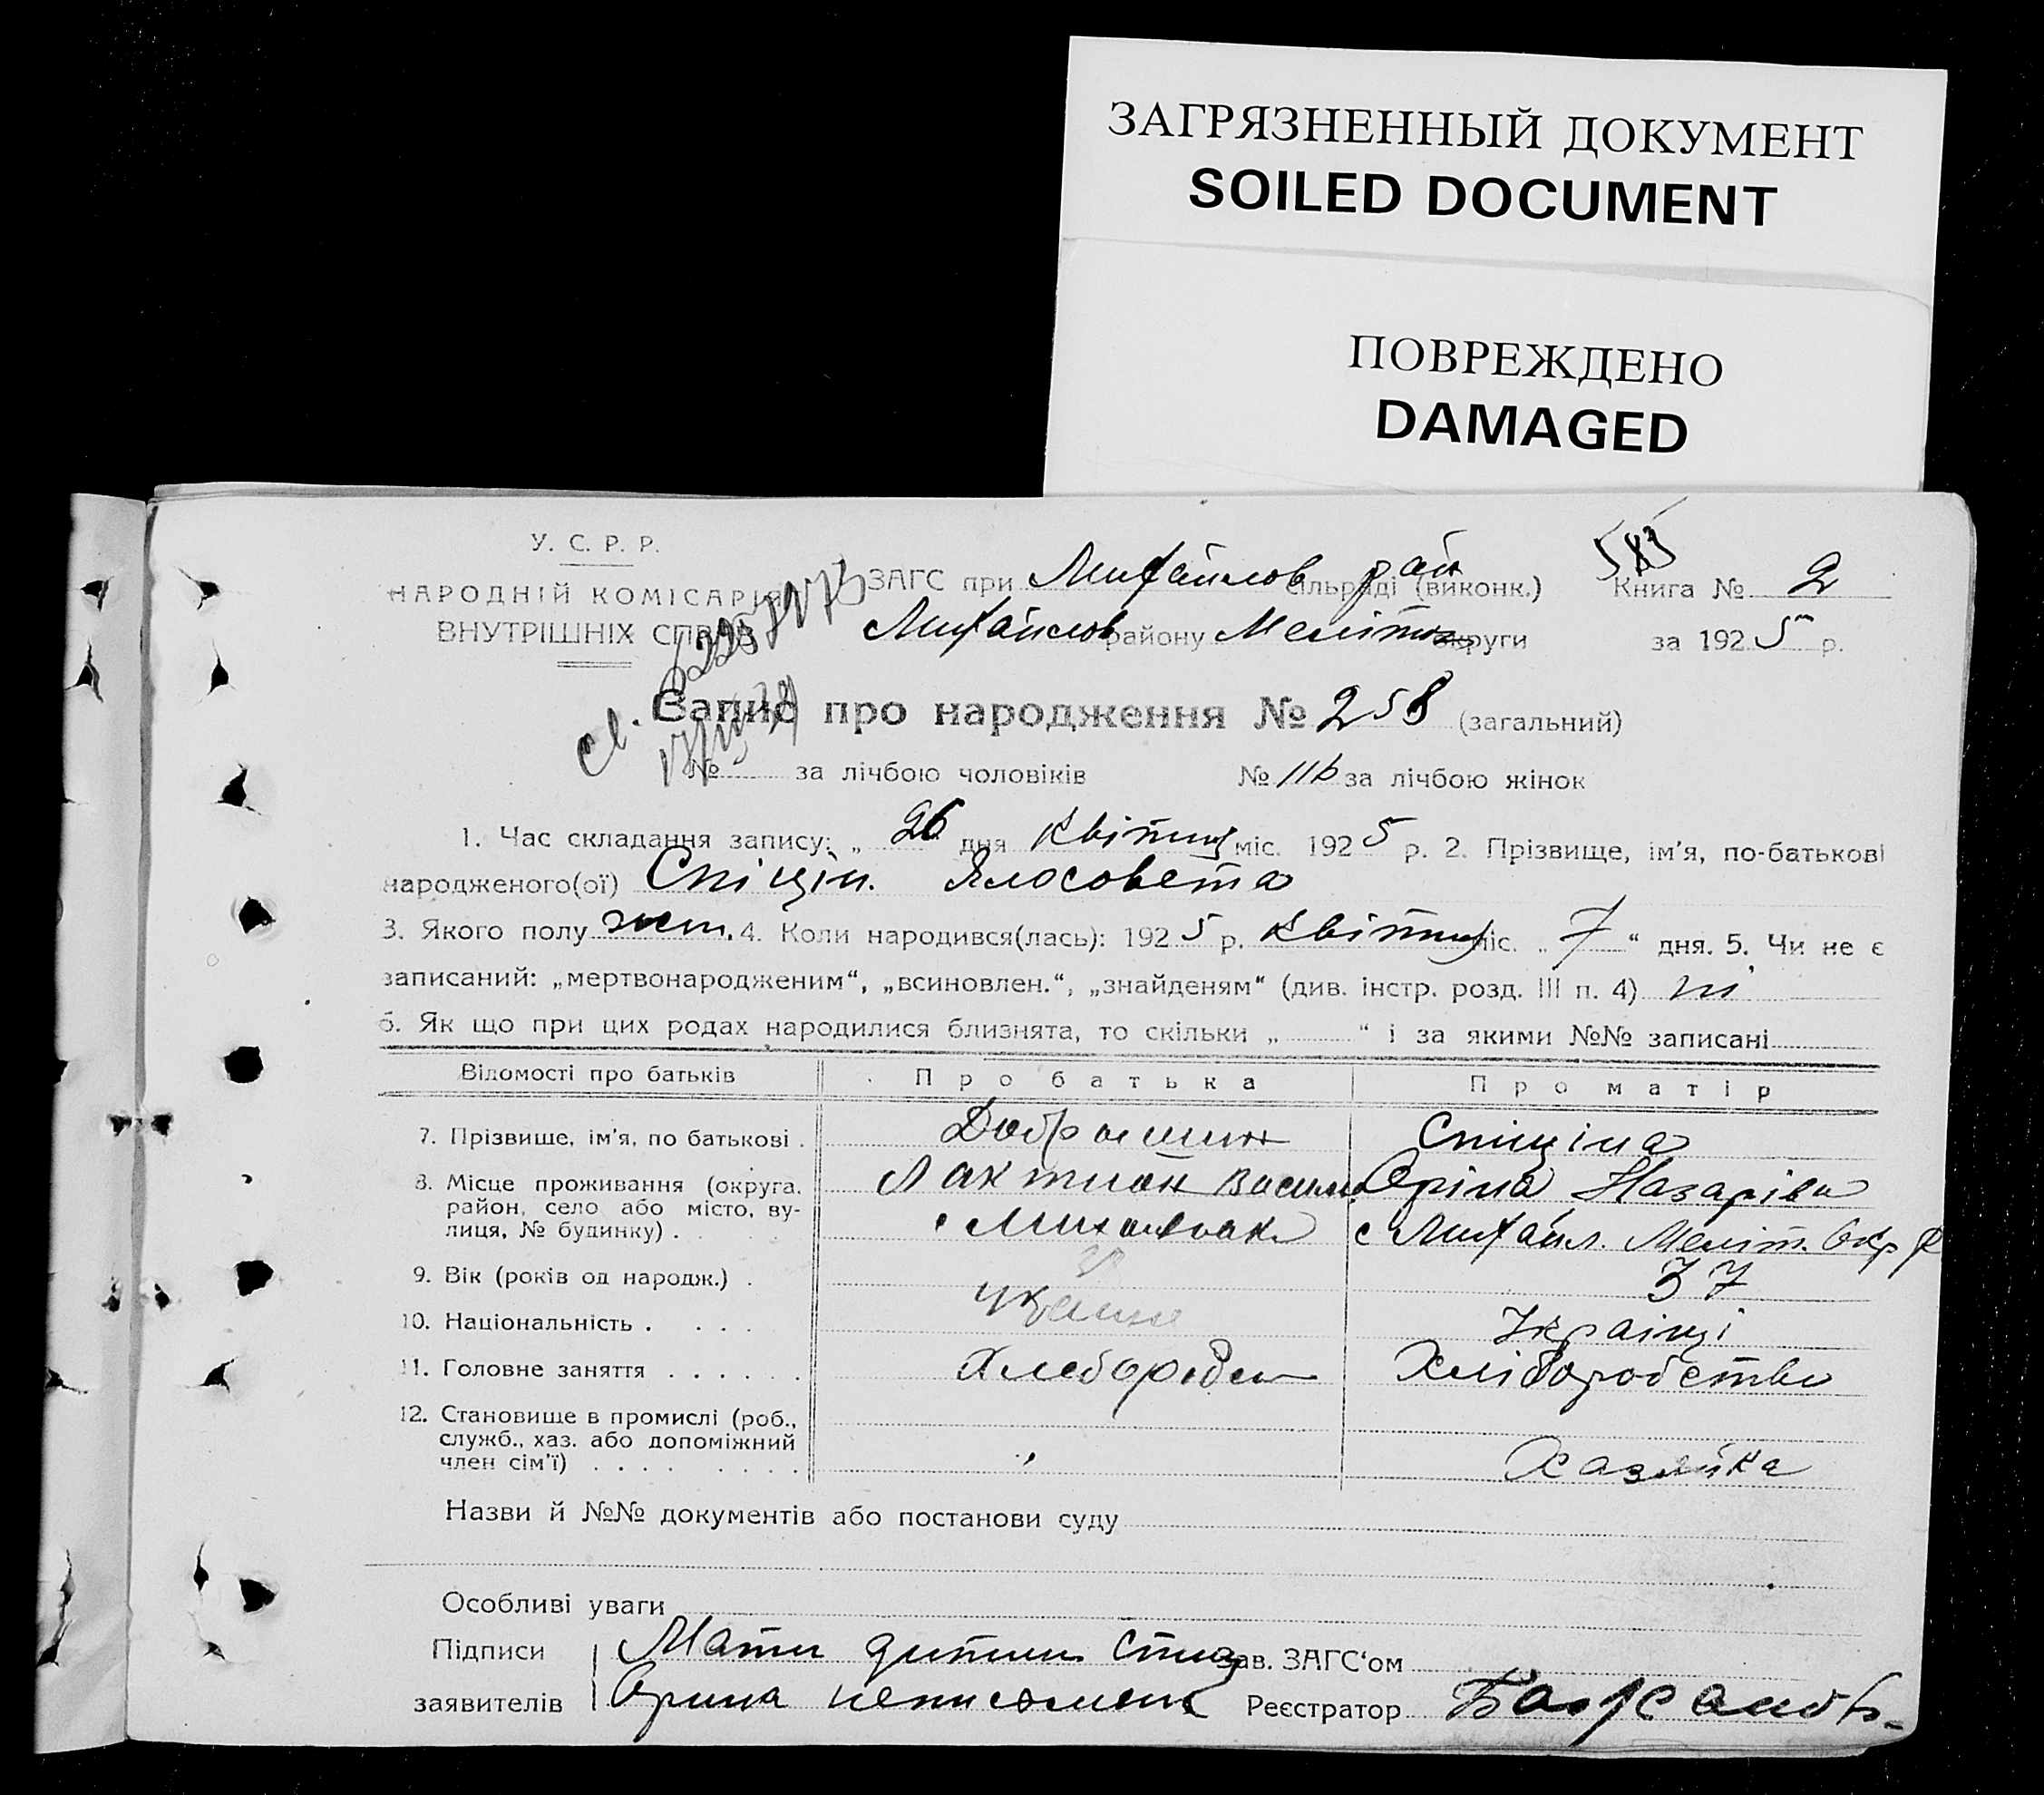 ЗАГРЯЗНЕННЫЙ ДОКУМЕНТ
SOILED DOCUMENT
ПОВРЕЖДЕНО
DAMAGED
У. С. Р. Р.
НАРОДНІЙ КОМІСАРІЯТ
ВНУТРІШНІХ СПРАВ
ЗАГС при Михайлов рай сільраді (виконк.) Книга № 2
Михайлов району Меліт округи за 1925 р.
Запис про народження № 258 (загальний)
№ за лічбою чоловіків № 116 за лічбою жінок
1. Час складання запису: „ 26 дня Квітня міс. 1925 р. 2. Прізвище, ім'я, по-батькові
народженого(ої) Спіцін. Ялосовета
3. Якого полу жін. 4. Коли народився(лась): 1925 р. Квітня міс. „ 7 “ дня. 5. Чи не є
записаний: „мертвонародженим“, „всиновлен.“, „знайденям“ (див. інстр. розд. III п. 4) ні
6. Як що при цих родах народилися близнята, то скільки „ “ і за якими №№ записані
Відомості про батьків Про батька Про матір
7. Прізвище, ім'я, по батькові . Спіціна
8. Місце проживання (округа, Василь Оріна Назарівна
район, село або місто, ву-
лиця, № будинку) . с Михайл. Меліт. Окр
9. Вік (років од народж.) . 37
10. Національність . . . . Україці
11. Головне заняття . . . . . . Хлебороб Хліборобство
12. Становище в промислі (роб.,
служб., хаз. або допоміжний
член сім'ї) . . . . . . . . Хазяйка
Назви й №№ документів або постанови суду
Особливі уваги
Підписи Мати дитини Спіц зав. ЗАГС'ом
заявителів Орина неписьмен Реєстратор